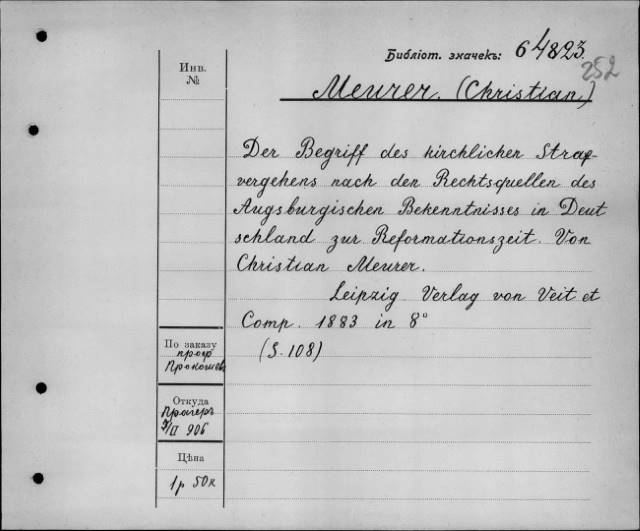 Библіот. значекъ: 64823.
252
Инв.
№
Meurer. (Christian)
Der Begriff des kirchlichen Straf-
vergehens nach den Rechtsquellen des
Augsburgischen Bekenntnisses in Deut
schland zur Reformationszeit. Von
Christian Meurer.
Leipzig Verlag von Veit et
Comp. 1883 in 8°
(S. 108)
По заказу
проф
Откуда
Прагеръ
906
Цѣна
1р 50к